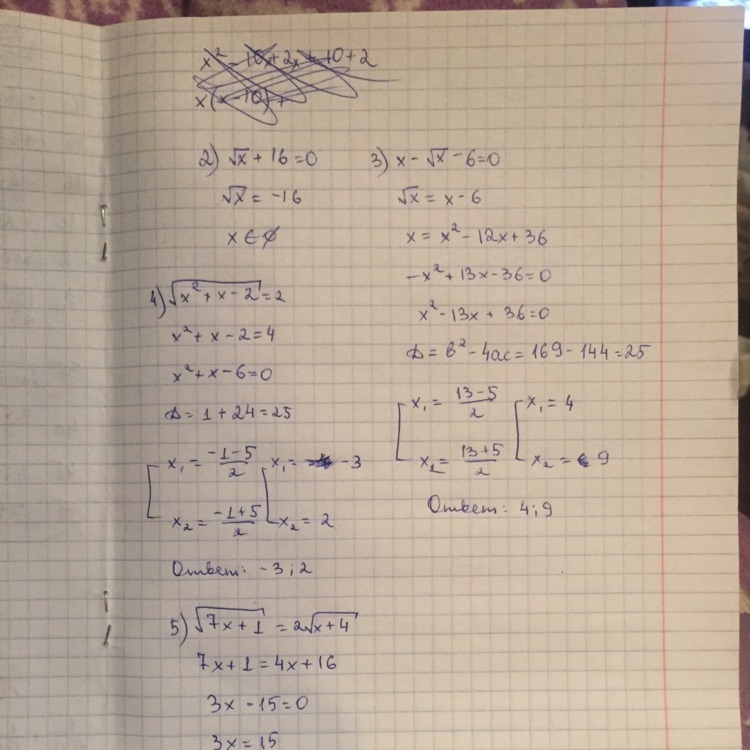 x² - 10x + 2x + 10 + 2
x(x - 10) +
2) √x + 16 = 0
√x = -16
x ∈ ∅
3) x - √x - 6 = 0
√x = x - 6
x = x² - 12x + 36
-x² + 13x - 36 = 0
x² - 13x + 36 = 0
D = b² - 4ac = 169 - 144 = 25
x₁ = (13-5)/2 x₁ = 4
x₂ = (13+5)/2 x₂ = 9
Ответ: 4; 9
4) √(x² + x - 2) = 2
x² + x - 2 = 4
x² + x - 6 = 0
D = 1 + 24 = 25
x₁ = (-1-5)/2 x₁ = -3
x₂ = (-1+5)/2 x₂ = 2
Ответ: -3; 2
5) √(7x + 1) = 2√(x + 4)
7x + 1 = 4x + 16
3x - 15 = 0
3x = 15